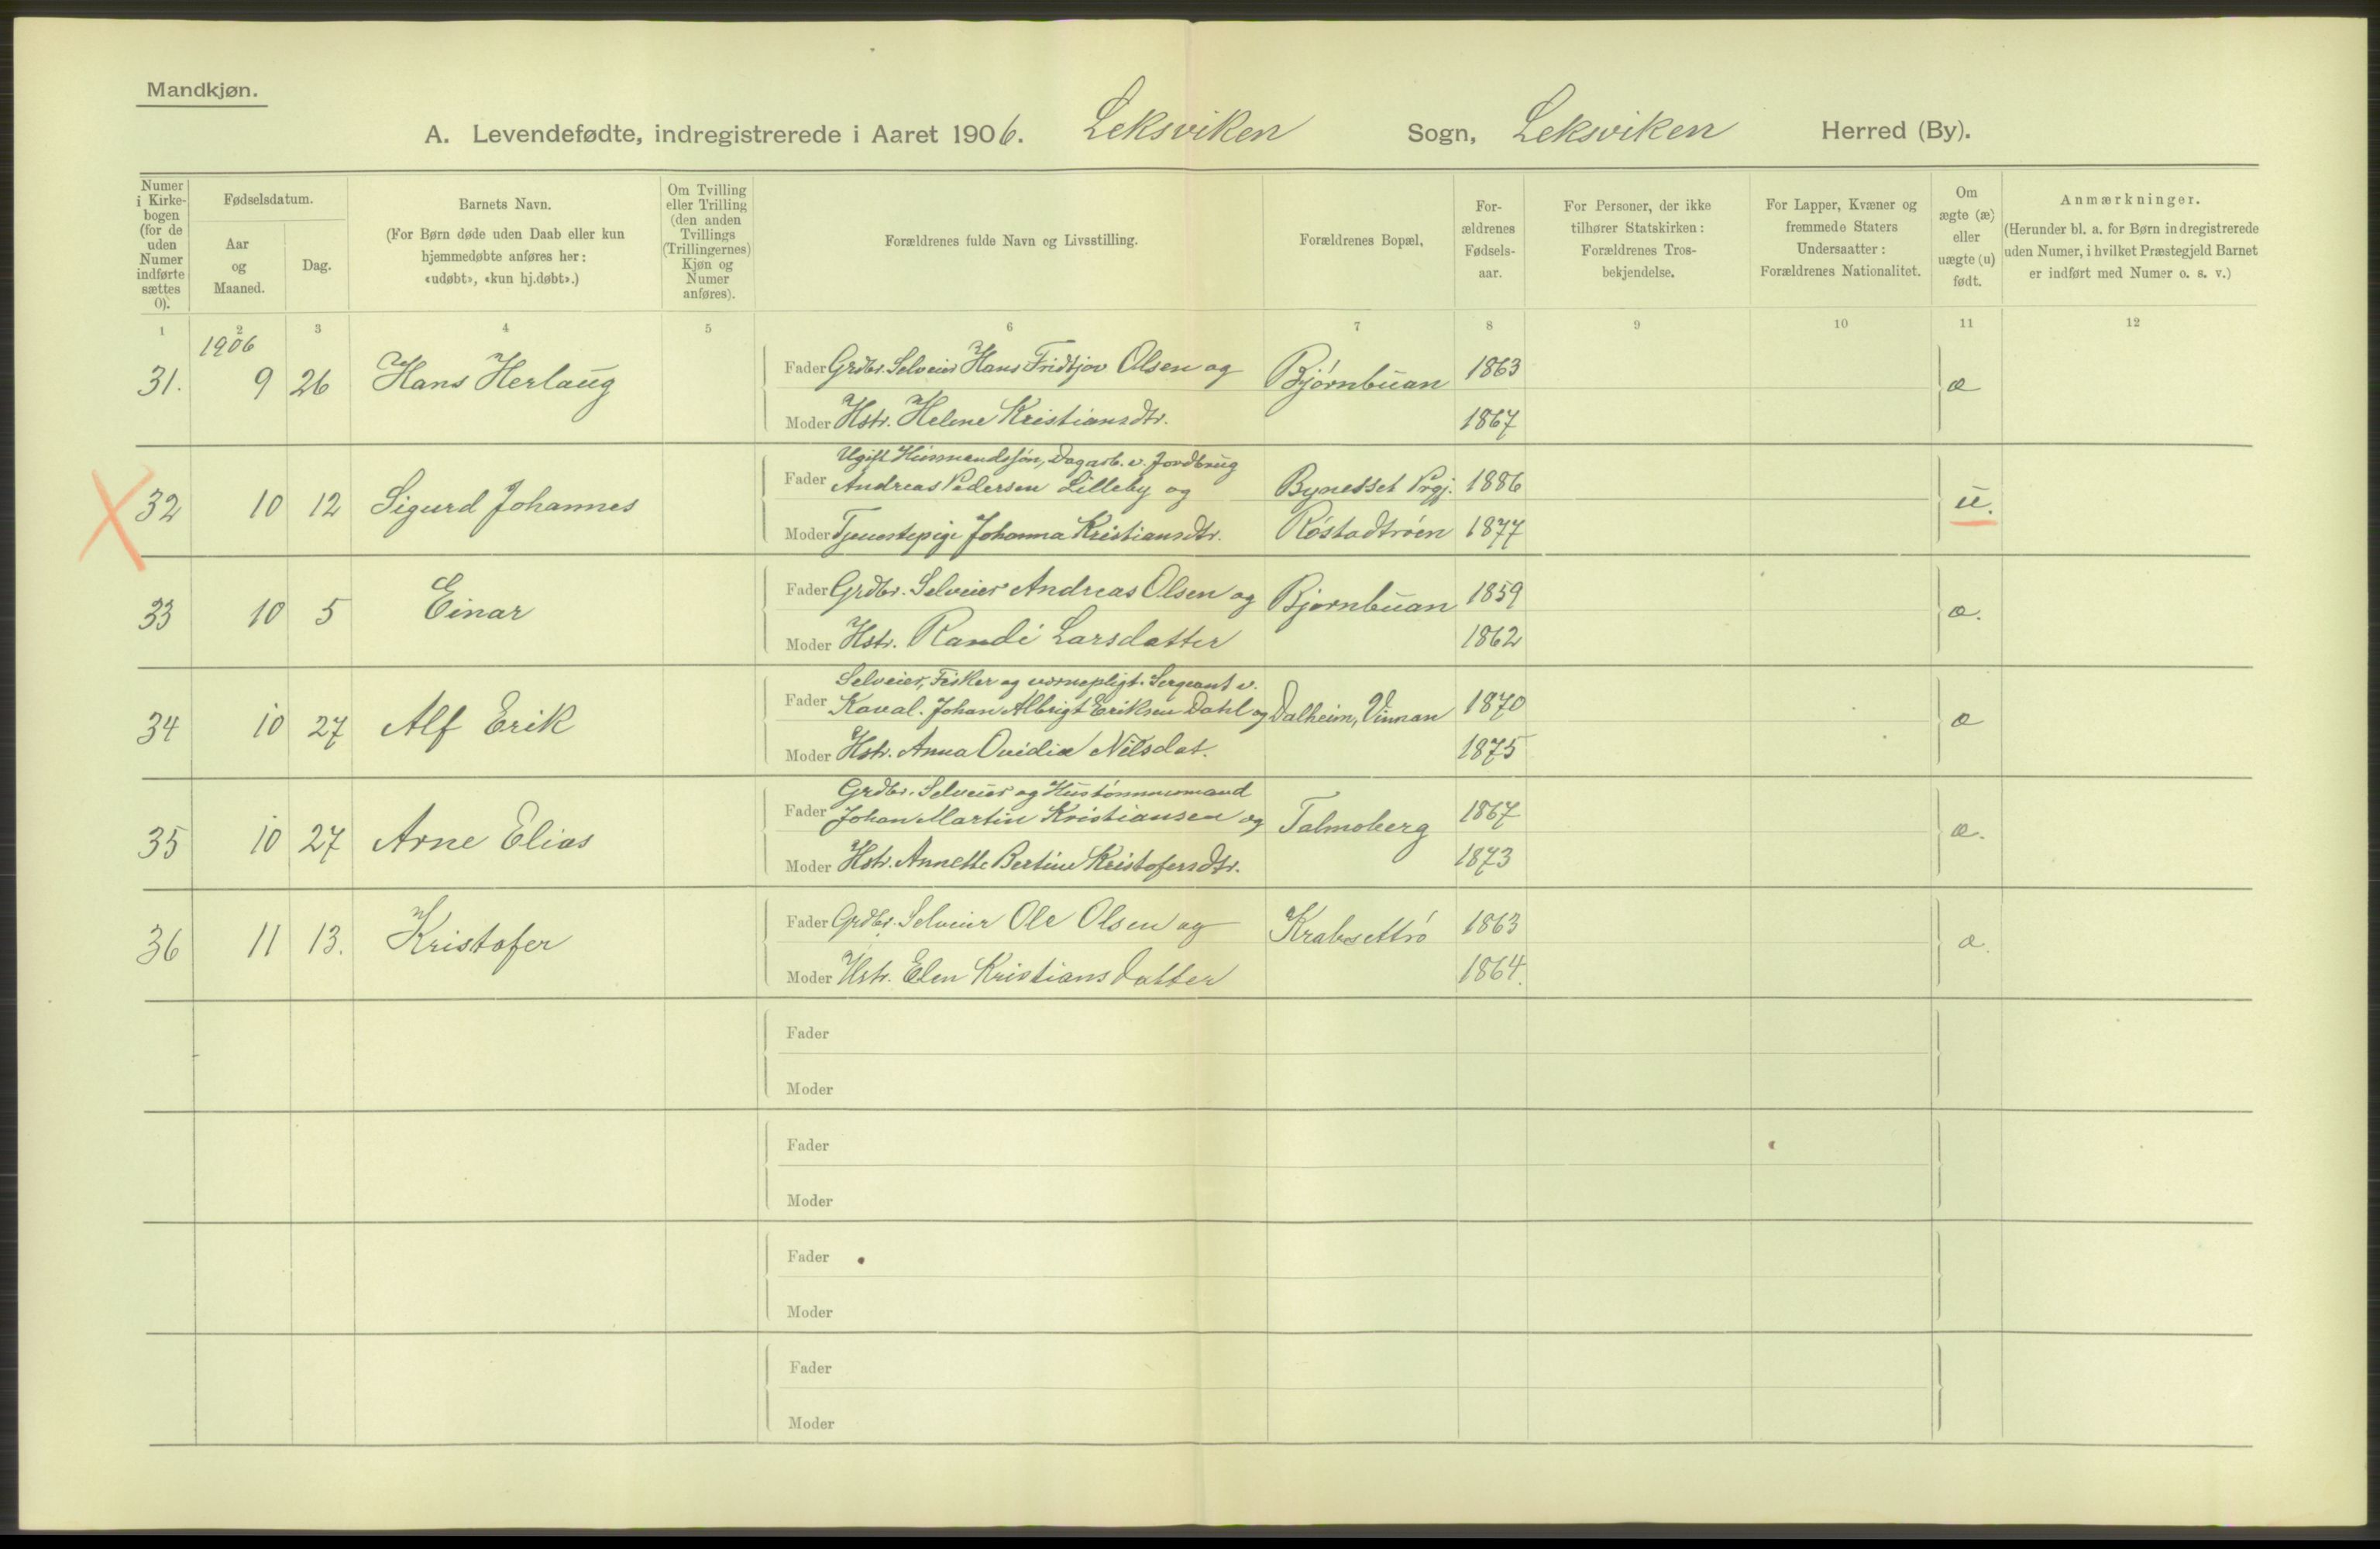 Mandkjøn.
A. Levendefødte, indregistrerede i Aaret 1906. Leksviken Sogn, Leksviken Herred (By).
Numer i Kirkebogen (for de uden Numer indførte sættes 0).
Fødselsdatum.
Aar og Maaned.
Dag.
Barnets Navn.
(For Børn døde uden Daab eller kun
hjemmedøbte anføres her:
«udøbt», «kun hj.døbt».)
Om Tvilling
eller Trilling
(den anden
Tvillings
(Trillingernes)
Kjøn og
Numer
anføres).
Forældrenes fulde Navn og Livsstilling.
Forældrenes Bopæl,
For-
ældrenes
Fødsels-
aar.
For Personer, der ikke
tilhører Statskirken:
Forældrenes Tros-
bekjendelse.
For Lapper, Kvæner og
fremmede Staters
Undersaatter:
Forældrenes Nationalitet.
Om
ægte (æ)
eller
uægte (u)
født.
Anmærkninger.
(Herunder bl. a. for Børn indregistrerede
uden Numer, i hvilket Præstegjeld Barnet
er indført med Numer o. s. v.)
1 2 3 4 5 6 7 8 9 10 11 12
1906
31. 9 26 Hans Herlaug
Fader Grdbr. Selveier Hans Fridtjov Olsen og Bjørnbuan 1863 æ
Moder Hstr. Helene Kristiansdtr. 1867
32 10 12 Sigurd Johannes
Ugift Husmandssøn, Dagarb. v. Jordbrug
Fader Andreas Pedersen Lilleby og Bynesset Prgj. 1886 u.
Moder Tjenestepige Johanna Kristiansdtr. Røstadtrøen 1877
33 10 5 Einar
Fader Grdbr. Selveier Andreas Olsen og Bjørnbuan 1859 æ.
Moder Hstr. Randi Larsdatter 1862
34 10 27 Alf Erik
Selveier, Fisker og vernepligt. Sergeant v.
Fader Kaval. Johan Albrigt Eriksen Dahl og Dalheim, Vinnan 1870 æ
Moder Hstr. Anna Ovidia Nilsdat. 1875
35 10 27 Arne Elias
Grdbr. Selveier og Hustømmermand
Fader Johan Martin Kristiansen og Talmoberg 1867 æ.
Moder Hstr. Annette Bertine Kristofersdtr. 1873
36 11 13. Kristofer
Fader Grdbr. Selveier Ole Olsen og Krabsettrø 1863 æ.
Moder Hstr. Elen Kristiansdatter 1864.
Fader
Moder
Fader
Moder
Fader
Moder
Fader
Moder